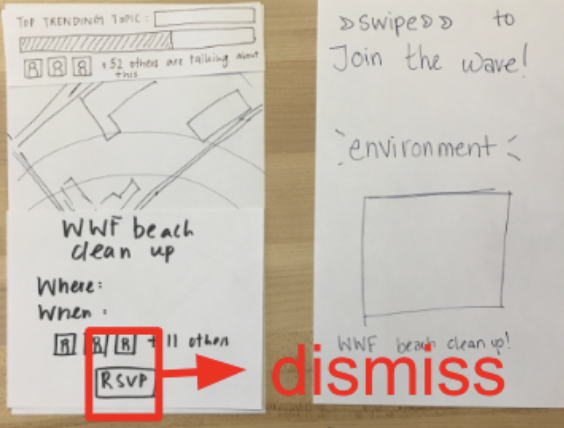 TOP TRENDING TOPIC:
+52 others are talking about
this
WWF beach
clean up
Where:
When:
+ 11 others
RSVP
»swipe»» to
Join the wave!
environment
WWF beach clean up!
dismiss